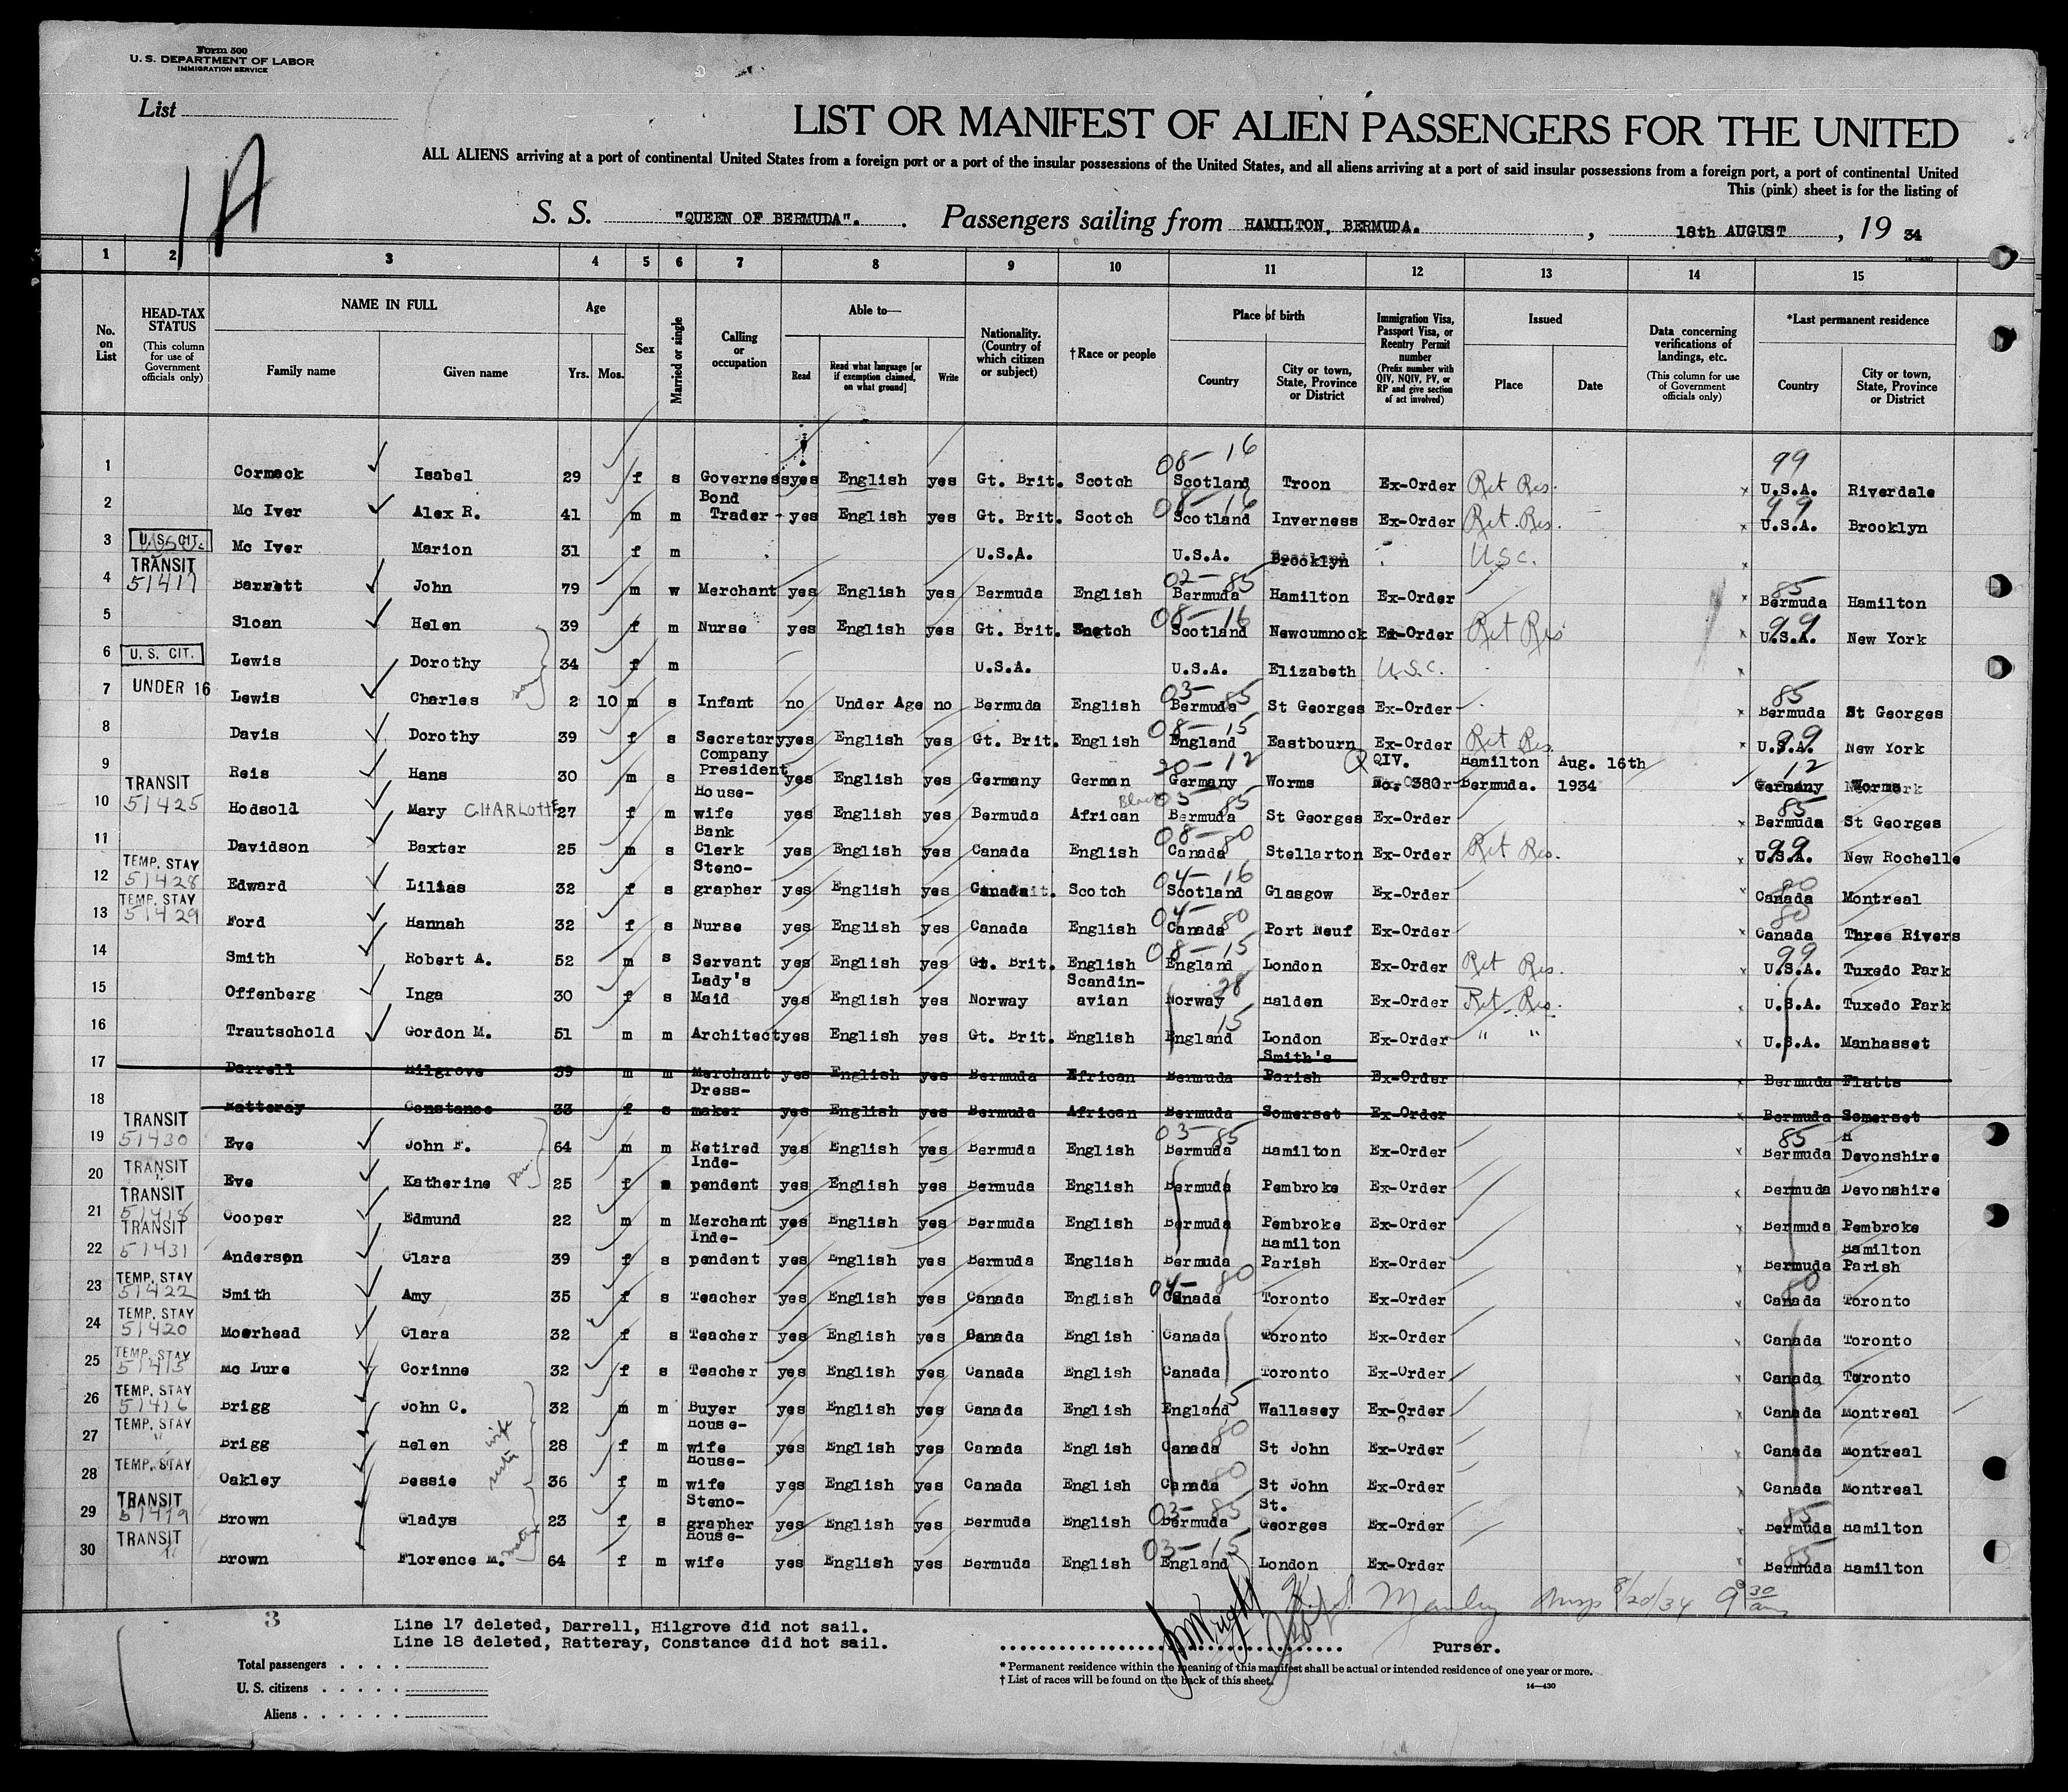 Form 500
U. S. DEPARTMENT OF LABOR
IMMIGRATION SERVICE
List
1A
LIST OR MANIFEST OF ALIEN PASSENGERS FOR THE UNITED
ALL ALIENS arriving at a port of continental United States from a foreign port or a port of the insular possessions of the United States, and all aliens arriving at a port of said insular possessions from a foreign port, a port of continental United
This (pink) sheet is for the listing of
S. S. "QUEEN OF BERMUDA". Passengers sailing from HAMILTON, BERMUDA. , 18th AUGUST , 19 34
14—430
1 2 3 4 5 6 7 8 9 10 11 12 13 14 15
No. on List
HEAD-TAX STATUS (This column for use of Government officials only)
NAME IN FULL Family name Given name
Age Yrs. Mos.
Sex
Married or single
Calling or occupation
Able to— Read Read what language [or if exemption claimed, on what ground] Write
Nationality. (Country of which citizen or subject)
†Race or people
Place of birth Country City or town, State, Province or District
Immigration Visa, Passport Visa, or Reentry Permit number (Prefix number with QIV, NQIV, PV, or RP and give section of act involved)
Issued Place Date
Data concerning verifications of landings, etc. (This column for use of Government officials only)
*Last permanent residence Country City or town, State, Province or District
1 Cormack Isabel 29 f s Governess yes English yes Gt. Brit. Scotch 08-16 Scotland Troon Ex-Order Ret Res. x 99 U.S.A. Riverdale
2 Mc Iver Alex R. 41 m m Bond Trader - yes English yes Gt. Brit. Scotch 08-16 Scotland Inverness Ex-Order Ret. Res. x 99 U.S.A. Brooklyn
3 U. S. CIT. Mc Iver Marion 31 f m U.S.A. U.S.A. Brooklyn U.S.C. x
4 TRANSIT 51417 Barrett John 79 m w Merchant yes English yes Bermuda English 02-85 Bermuda Hamilton Ex-Order x 85 Bermuda Hamilton
5 Sloan Helen 39 f m Nurse yes English yes Gt. Brit. Scotch 08-16 Scotland Newcumnock Ex-Order Ret Res x 99 U.S.A. New York
6 U. S. CIT. Lewis Dorothy 34 f m U.S.A. U.S.A. Elizabeth U.S.C. x
7 UNDER 16 Lewis Charles son 2 10 m s Infant no Under Age no Bermuda English 03-85 Bermuda St Georges Ex-Order x 85 Bermuda St Georges
8 Davis Dorothy 39 f s Secretary yes English yes Gt. Brit. English 08-15 England Eastbourn Ex-Order Ret Res. x 99 U.S.A. New York
9 Reis Hans 30 m s Company President yes English yes Germany German 20-12 Germany Worms QIV. No. 380 Hamilton Bermuda. Aug. 16th 1934 12 Germany Worms
10 TRANSIT 51425 Hodsold Mary CHARLOTTE 27 f m House-wife yes English yes Bermuda Black African 03-85 Bermuda St Georges Ex-Order x 85 Bermuda St Georges
11 Davidson Baxter 25 m s Bank Clerk yes English yes Canada English 08-80 Canada Stellarton Ex-Order Ret Res. x 99 U.S.A. New Rochelle
12 TEMP. STAY 51428 Edward Lilias 32 f s Steno-grapher yes English yes Canada Scotch 04-16 Scotland Glasgow Ex-Order x 80 Canada Montreal
13 TEMP. STAY 51429 Ford Hannah 32 f s Nurse yes English yes Canada English 04-80 Canada Port Neuf Ex-Order x 80 Canada Three Rivers
14 Smith Robert A. 52 m s Servant yes English yes Gt. Brit. English 08-15 England London Ex-Order Ret Res. x 99 U.S.A. Tuxedo Park
15 Offenberg Inga 30 f s Lady's Maid yes English yes Norway Scandin-avian 28 Norway Halden Ex-Order Ret. Res. x U.S.A. Tuxedo Park
16 Trautschold Gordon M. 51 m m Architect yes English yes Gt. Brit. English 15 England London Ex-Order " " x U.S.A. Manhasset
17 Darrell Hilgrove 39 m m Merchant yes English yes Bermuda African Bermuda Smith's Parish Ex-Order x Bermuda Flatts
18 Ratteray Constance 33 f s Dress-maker yes English yes Bermuda African Bermuda Somerset Ex-Order x Bermuda Somerset
19 TRANSIT 51430 Eve John F. 64 m m Retired yes English yes Bermuda English 03-85 Bermuda Hamilton Ex-Order x 85 Bermuda Devonshire
20 TRANSIT " Eve Katherine 25 f s Inde-pendent yes English yes Bermuda English Bermuda Pembroke Ex-Order x Bermuda Devonshire
21 TRANSIT 51418 Cooper Edmund 22 m m Merchant yes English yes Bermuda English Bermuda Pembroke Ex-Order x Bermuda Pembroke
22 TRANSIT 51431 Anderson Clara 39 f s Inde-pendent yes English yes Bermuda English Bermuda Hamilton Parish Ex-Order x Bermuda Hamilton Parish
23 TEMP. STAY 51422 Smith Amy 35 f s Teacher yes English yes Canada English 04-80 Canada Toronto Ex-Order x 80 Canada Toronto
24 TEMP. STAY 51420 Moorhead Clara 32 f s Teacher yes English yes Canada English Canada Toronto Ex-Order x Canada Toronto
25 TEMP. STAY 51415 Mc Lure Corinne 32 f s Teacher yes English yes Canada English Canada Toronto Ex-Order x Canada Toronto
26 TEMP. STAY 51416 Brigg John C. 32 m m Buyer yes English yes Canada English 15 England Wallasey Ex-Order x Canada Montreal
27 TEMP. STAY " Brigg Helen wife 28 f m House-wife yes English yes Canada English 80 Canada St John Ex-Order x Canada Montreal
28 TEMP. STAY Oakley Bessie sister 36 f m House-wife yes English yes Canada English 80 Canada St John Ex-Order x Canada Montreal
29 TRANSIT 51419 Brown Gladys 23 f s Steno-grapher yes English yes Bermuda English 03-85 Bermuda St. Georges Ex-Order x 85 Bermuda Hamilton
30 TRANSIT " Brown Florence M. mother 64 f m House-wife yes English yes Bermuda English 03-15 England London Ex-Order x 85 Bermuda Hamilton
Manley Insp 8/20/34 9 30 am
3
Line 17 deleted, Darrell, Hilgrove did not sail.
Line 18 deleted, Ratteray, Constance did hot sail.
Purser.
Total passengers . . . .
U. S. citizens . . . . .
Aliens . . . . . .
* Permanent residence within the meaning of this manifest shall be actual or intended residence of one year or more.
† List of races will be found on the back of this sheet.
14—430